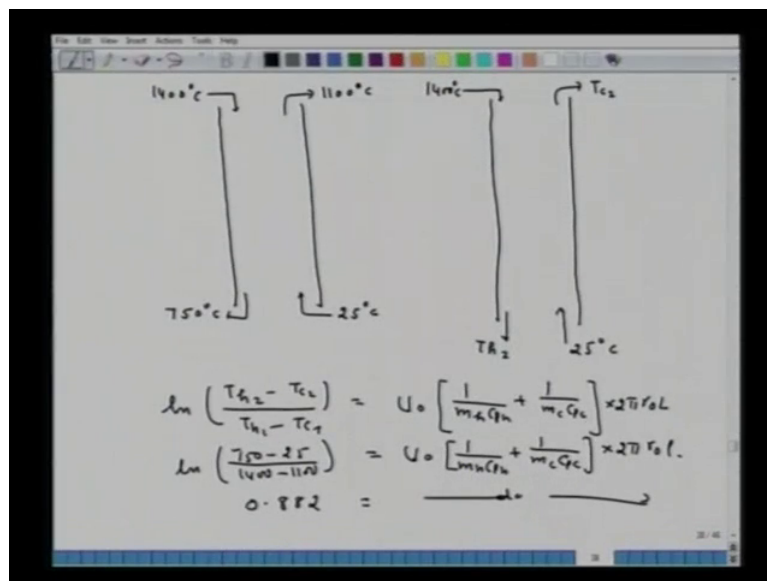 File Edit View Insert Actions Tools Help
1400°C 1100°C 1400°C Tc₂
750°C 25°C
Th₂ 25°C
ln (Th₂ - Tc₂ / Th₁ - Tc₁) = U₀ [1/mₕCpₕ + 1/m_cCp_c] × 2π r₀ L
ln (750 - 25 / 1400 - 1100) = U₀ [1/mₕCpₕ + 1/m_cCp_c] × 2π r₀ l.
0.882 = —do—